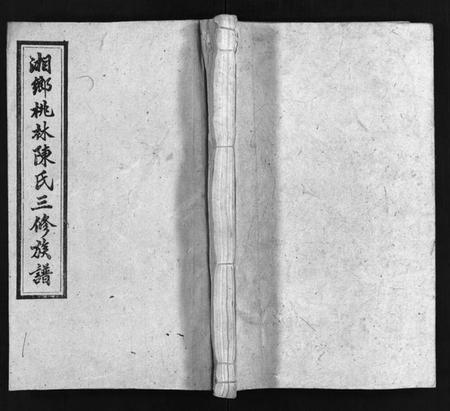 湘鄉桃林陳氏三修族譜